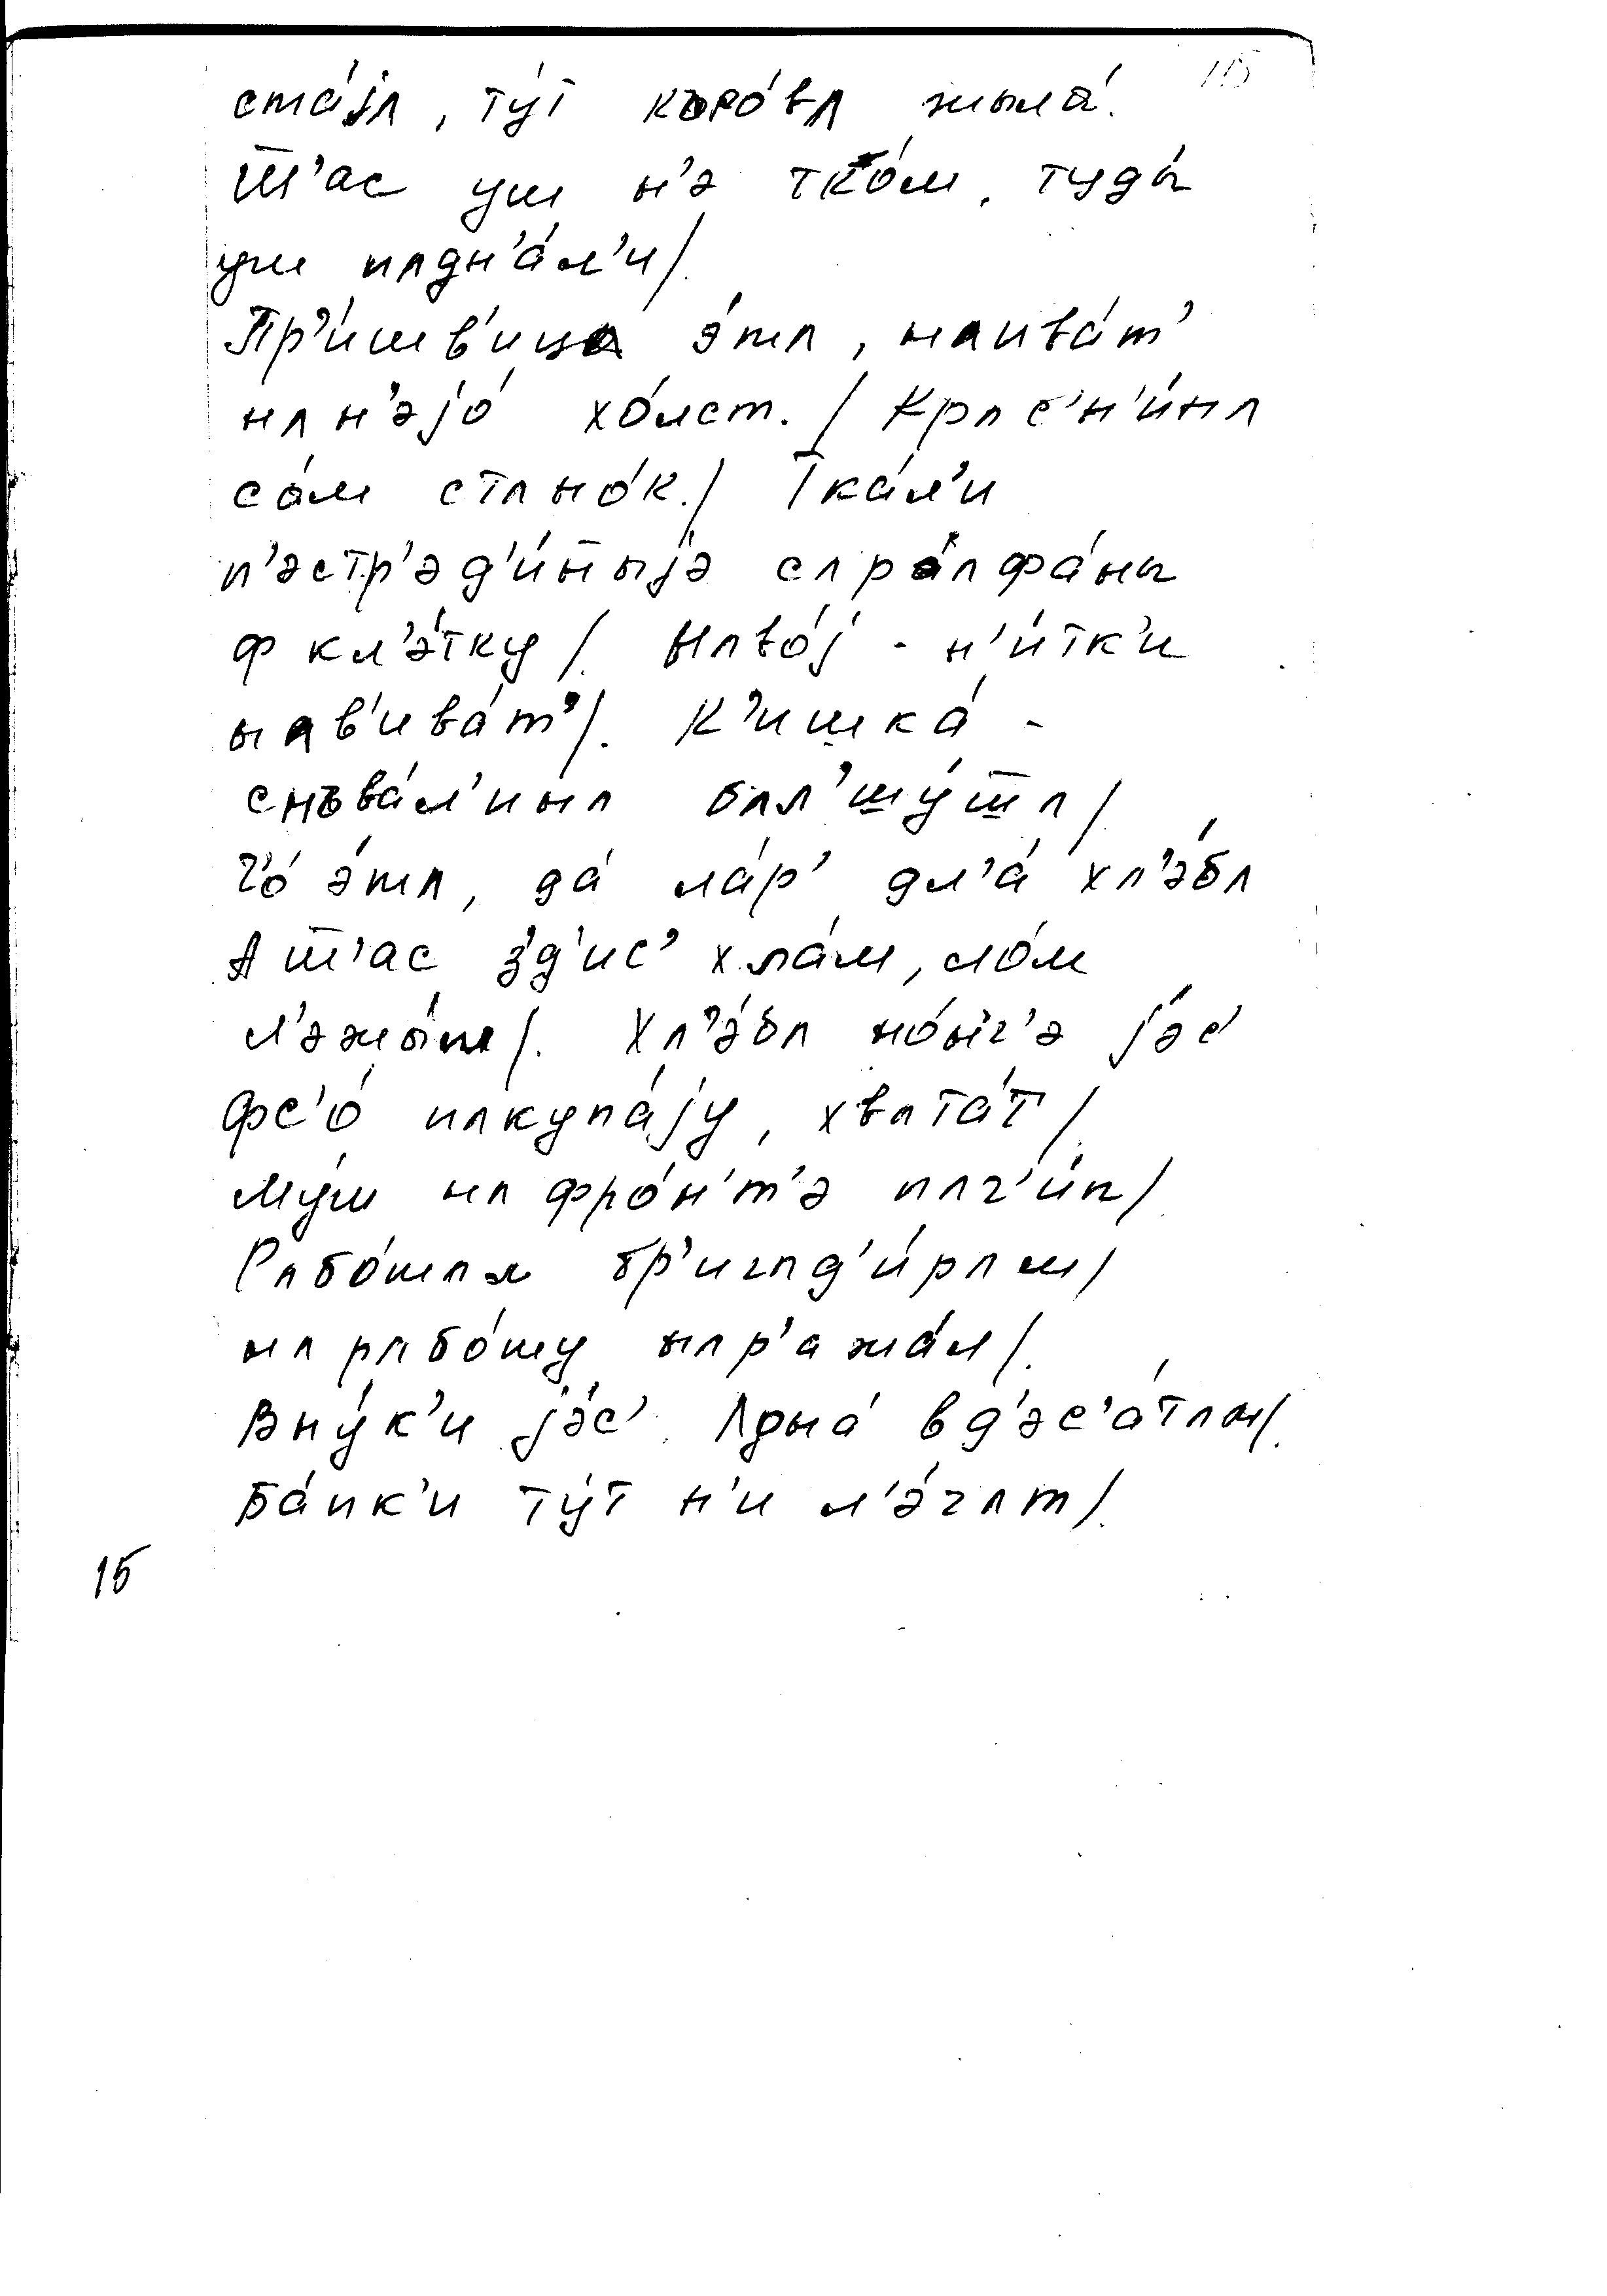 15
ста́jʌ, ту́т къро́вʌ жыла́.
Ш̅'ас уш н'э тко́м, туды́
уш пʌдн'а́л'и/.
Пр'и́шв'ица э́тʌ, нʌива́т'
нʌ н'эjо́ хо́лст./ Крʌс'н'и́нʌ
са́м стʌно́к./ Тка́л'и
п'эстр'эд'и́н̅ыjэ сʌрʌфа́ны
ф кл'э́тку/. Нʌво́j - н'и́тк'и
нʌв'ива́т'/. К'ишка́ -
снъва́л'инʌ бʌл'шу́ш̅ʌ/
Ч'о́ э́тʌ, да́ ла́р' дл'а́ хл'э́бʌ
А ш̅'ас з'д'ис' хла́м, ло́м
л'эжы́т/. Хл'э́бʌ но́н'г'э jэ́с'
Фс'о́ пʌкупа́jу, хвʌта́т/
Му́ш нʌ фро́н'т'э пʌг'и́п/
Рʌбо́тʌл бр'игʌд'и́рʌм/
нʌ рʌбо́ту нʌр'ажа́л/.
Вну́к'и jэ́с'. Лдна́ в д'эс'а́тʌм/.
Ба́пк'и ту́т н'и л'э́гʌт/.
15